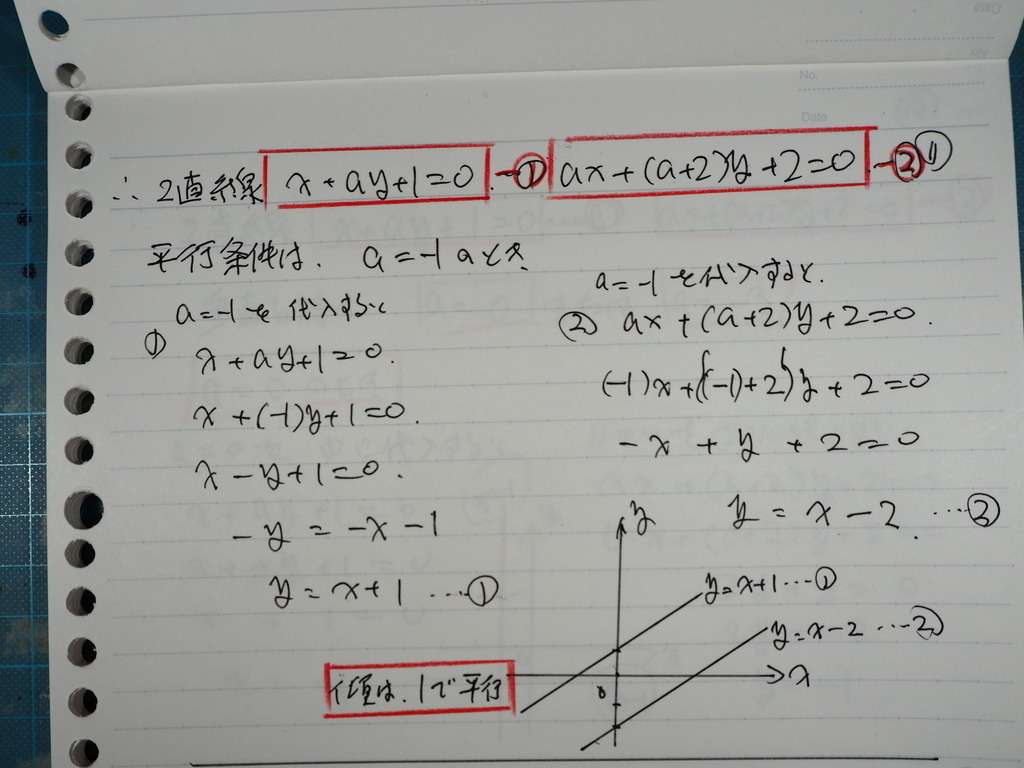 No.
Date
∴ 2直線 x+ay+1=0 …① ax+(a+2)y+2=0 …② ⑪
平行条件は、a=-1のとき、
a=-1を代入すると
① x+ay+1=0.
x+(-1)y+1=0.
x-y+1=0.
-y=-x-1
y=x+1 …①
a=-1を代入すると.
② ax+(a+2)y+2=0.
(-1)x+{(-1)+2}y+2=0
-x+y+2=0
y=x-2 …②
y
y=x+1…①
y=x-2 …②
x
0
傾は、1で平行